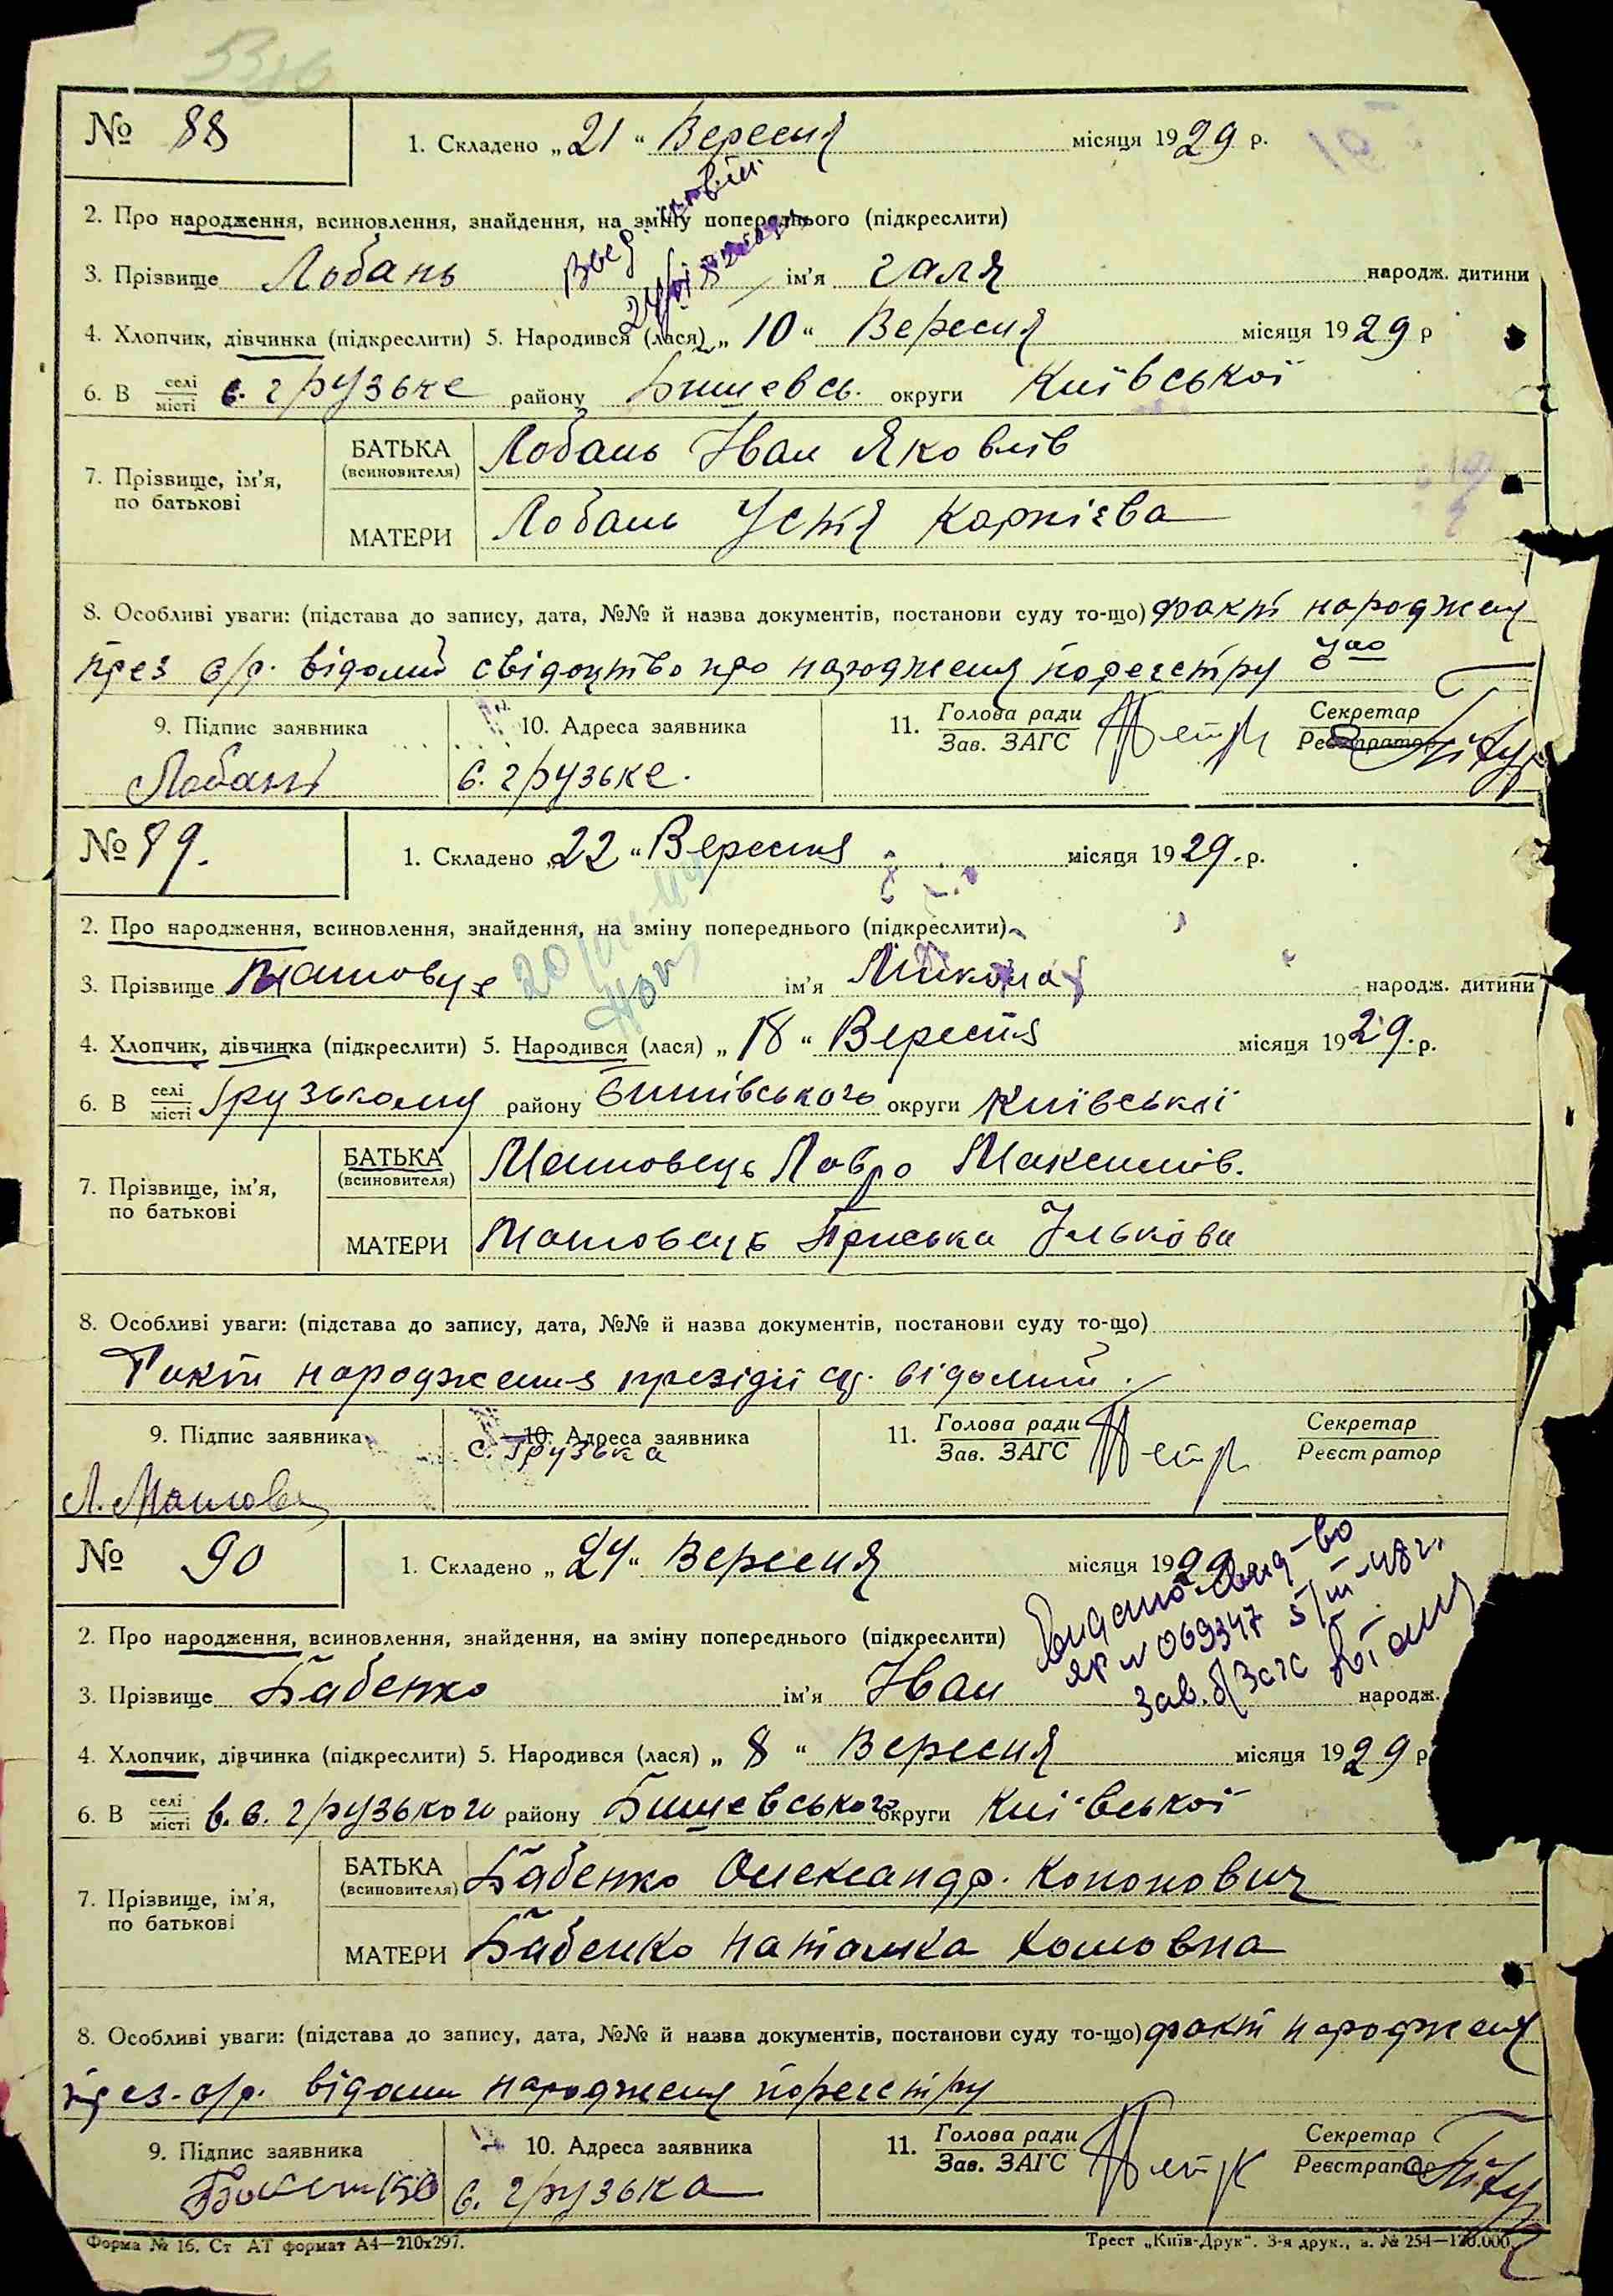 № 88
1. Складено „21“ Вересня місяця 1929 р.
2. Про народження, всиновлення, знайдення, на зміну попереднього (підкреслити)
3. Прізвище Лобань ім'я Галя народж. дитини
4. Хлопчик, дівчинка (підкреслити) 5. Народився (лася) „10“ Вересня місяця 1929 р
6. В селі місті с. Грузьке району Бишевсь. округи Київської
7. Прізвище, ім'я, по батькові
БАТЬКА (всиновителя) Лобань Іван Яковлів
МАТЕРИ Лобань Устя Карпієва
8. Особливі уваги: (підстава до запису, дата, №№ й назва документів, постанови суду то-що) факт народженя
през с/р. відомий свідоцтво про народженя
9. Підпис заявника 10. Адреса заявника 11. Голова ради Зав. ЗАГС Секретар Реєстратор
Лобань с. Грузьке.
№ 89.
1. Складено „22“ Вересня місяця 1929. р.
2. Про народження, всиновлення, знайдення, на зміну попереднього (підкреслити)
3. Прізвище ім'я Микола народж. дитини
4. Хлопчик, дівчинка (підкреслити) 5. Народився (лася) „18“ Вересня місяця 1929. р.
6. В селі місті Грузькому району Бишівського округи Київської
7. Прізвище, ім'я, по батькові
БАТЬКА (всиновителя) Лавро Максимів.
МАТЕРИ Приська Ількова
8. Особливі уваги: (підстава до запису, дата, №№ й назва документів, постанови суду то-що)
Факт народження президії с/р. відомий.
9. Підпис заявника 10. Адреса заявника 11. Голова ради Зав. ЗАГС Секретар Реєстратор
с. Грузька
№ 90
1. Складено „24“ Вересня місяця 1929
2. Про народження, всиновлення, знайдення, на зміну попереднього (підкреслити)
Видано свид-во
№ 069347 5/III-48 г.
Зав. б/Загс
3. Прізвище Бабенко ім'я Іван народж.
4. Хлопчик, дівчинка (підкреслити) 5. Народився (лася) „8“ Вересня місяця 1929 р
6. В селі місті в. с. Грузького району Бишевського округи Київської
7. Прізвище, ім'я, по батькові
БАТЬКА (всиновителя) Бабенко Олександр. Кононович
МАТЕРИ Бабенко Наталка Хомовна
8. Особливі уваги: (підстава до запису, дата, №№ й назва документів, постанови суду то-що) факт народженя
през. с/р. відоми народженя
9. Підпис заявника 10. Адреса заявника 11. Голова ради Зав. ЗАГС Секретар Реєстратор
с. Грузька
Форма № 16. Ст АТ формат А4—210х297. Трест „Київ-Друк“. 3-я друк., з. № 254—120.000